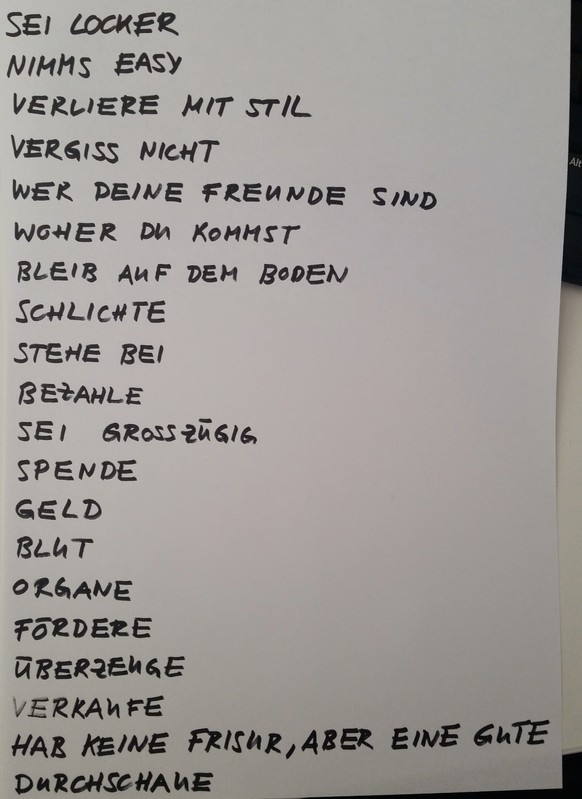 SEI LOCKER
NIMMS EASY
VERLIERE MIT STIL
VERGISS NICHT
WER DEINE FREUNDE SIND
WOHER DU KOMMST
BLEIB AUF DEM BODEN
SCHLICHTE
STEHE BEI
BEZAHLE
SEI GROSSZÜGIG
SPENDE
GELD
BLUT
ORGANE
FÖRDERE
ÜBERZEUGE
VERKAUFE
HAB KEINE FRISUR, ABER EINE GUTE
DURCHSCHAUE
Alt